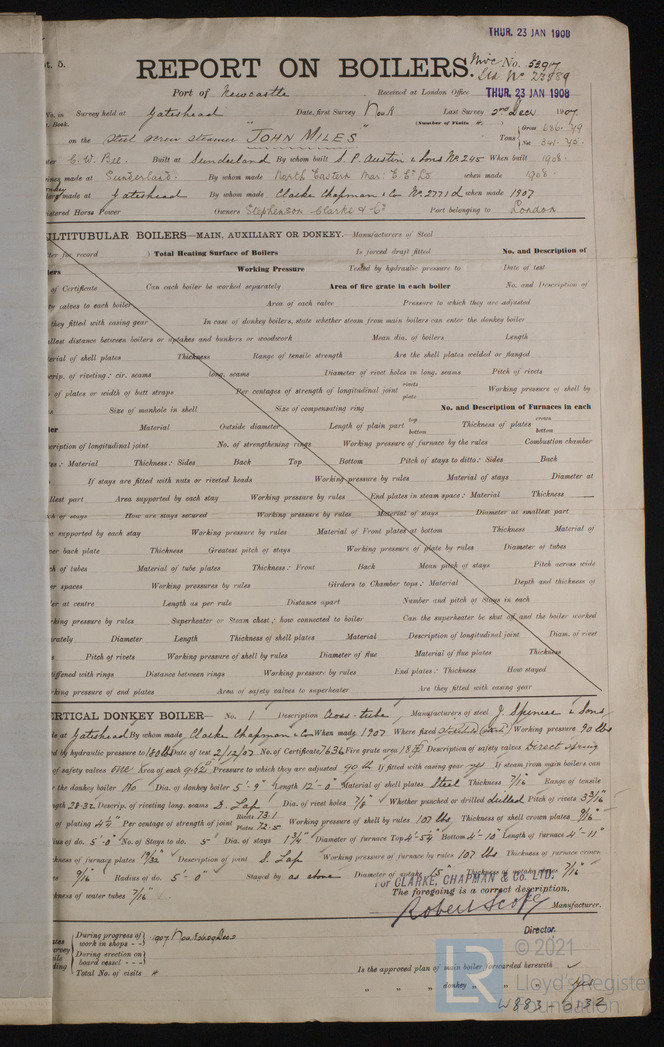 THUR. 23 JAN 1908
t. 5.
REPORT ON BOILERS.
No. 53917
Port of Newcastle Received at London Office THUR. 23 JAN 1908
No. in Survey held at Gateshead Date, first Survey Nov 8 Last Survey 2nd Dec 1907
Book. (Number of Visits 4.)
on the Steel screw steamer JOHN MILES Tons Gross 686.49 Net 341.
C. W. Bee. Built at Sunderland By whom built S. P. Austin & Sons No. 245 When built 1908.
made at Sunderland. By whom made North Eastern Mar. E. Co Ld when made 1908
made at Gateshead By whom made Clarke Chapman & Co No. 2771d when made 1907
istered Horse Power Owners Stephenson Clarke & Co Port belonging to London
ULTITUBULAR BOILERS—MAIN, AUXILIARY OR DONKEY.—Manufacturers of Steel
for record Total Heating Surface of Boilers Is forced draft fitted No. and Description of
lers Working Pressure Tested by hydraulic pressure to Date of test
of Certificate Can each boiler be worked separately Area of fire grate in each boiler No. and Description of
ty valves to each boiler Area of each valve Pressure to which they are adjusted
they fitted with easing gear In case of donkey boilers, state whether steam from main boilers can enter the donkey boiler
llest distance between boilers or uptakes and bunkers or woodwork Mean dia. of boilers Length
terial of shell plates Thickness Range of tensile strength Are the shell plates welded or flanged
crip. of riveting: cir. seams long. seams Diameter of rivet holes in long. seams Pitch of rivets
of plates or width of butt straps Per centages of strength of longitudinal joint rivets plate Working pressure of shell by
s Size of manhole in shell Size of compensating ring No. and Description of Furnaces in each
ler Material Outside diameter Length of plain part top bottom Thickness of plates crown bottom
cription of longitudinal joint No. of strengthening rings Working pressure of furnace by the rules Combustion chamber
tes: Material Thickness: Sides Back Top Bottom Pitch of stays to ditto: Sides Back
If stays are fitted with nuts or riveted heads Working pressure by rules Material of stays Diameter at
llest part Area supported by each stay Working pressure by rules End plates in steam space: Material Thickness
ch of stays How are stays secured Working pressure by rules Material of stays Diameter at smallest part
a supported by each stay Working pressure by rules Material of Front plates at bottom Thickness Material of
er back plate Thickness Greatest pitch of stays Working pressure of plate by rules Diameter of tubes
ch of tubes Material of tube plates Thickness: Front Back Mean pitch of stays Pitch across wide
er spaces Working pressures by rules Girders to Chamber tops: Material Depth and thickness of
er at centre Length as per rule Distance apart Number and pitch of Stays in each
king pressure by rules Superheater or Steam chest; how connected to boiler Can the superheater be shut off and the boiler worked
rately Diameter Length Thickness of shell plates Material Description of longitudinal joint Diam. of rivet
s Pitch of rivets Working pressure of shell by rules Diameter of flue Material of flue plates Thickness
iffened with rings Distance between rings Working pressure by rules End plates: Thickness How stayed
king pressure of end plates Area of safety valves to superheater Are they fitted with easing gear
ERTICAL DONKEY BOILER— No. 1 Description Cross-tube Manufacturers of steel J. Spencer & Sons
at Gateshead By whom made Clarke Chapman & Co When made 1907 Where fixed Working pressure 90 lbs
by hydraulic pressure to 180 lbs Date of test 2/12/07 No. of Certificate 7636 Fire grate area Description of safety valves Direct spring
of safety valves one Area of each 9.62" Pressure to which they are adjusted 90 lb If fitted with easing gear yes If steam from main boilers can
r the donkey boiler No Dia. of donkey boiler 5'-9" Length 12'-0" Material of shell plates Steel Thickness 7/16" Range of tensile
gth 28-32 Descrip. of riveting long. seams D. Lap Dia. of rivet holes 7/8" Whether punched or drilled drilled Pitch of rivets 3 3/16"
of plating 4 1/4" Per centage of strength of joint Rivets 73.1 Plates 72.5 Working pressure of shell by rules 107 lbs Thickness of shell crown plates 9/16"
ius of do. 5'-0" No. of Stays to do. 5 Dia. of stays 1 3/4" Diameter of furnace Top 4'-5 1/4" Bottom 4'-10" Length of furnace 4'-11"
kness of furnace plates 19/32" Description of joint S. Lap Working pressure of furnace by rules 107 lbs Thickness of furnace crown
es 9/16" Radius of do. 5'-0" Stayed by as above Diameter of uptake 15" Thickness of uptake plates 7/16"
kness of water tubes 7/16"
For CLARKE, CHAPMAN & Co. LTD.
The foregoing is a correct description,
Robert Scott Manufacturer.
Director.
During progress of work in shops - - 1907 Nov. 8 Dec. 2
During erection on board vessel - - -
Total No. of visits 4
Is the approved plan of main boiler forwarded herewith
" " " donkey " " yes
W883-0132
LR
© 2021
Lloyd's Register
Foundation